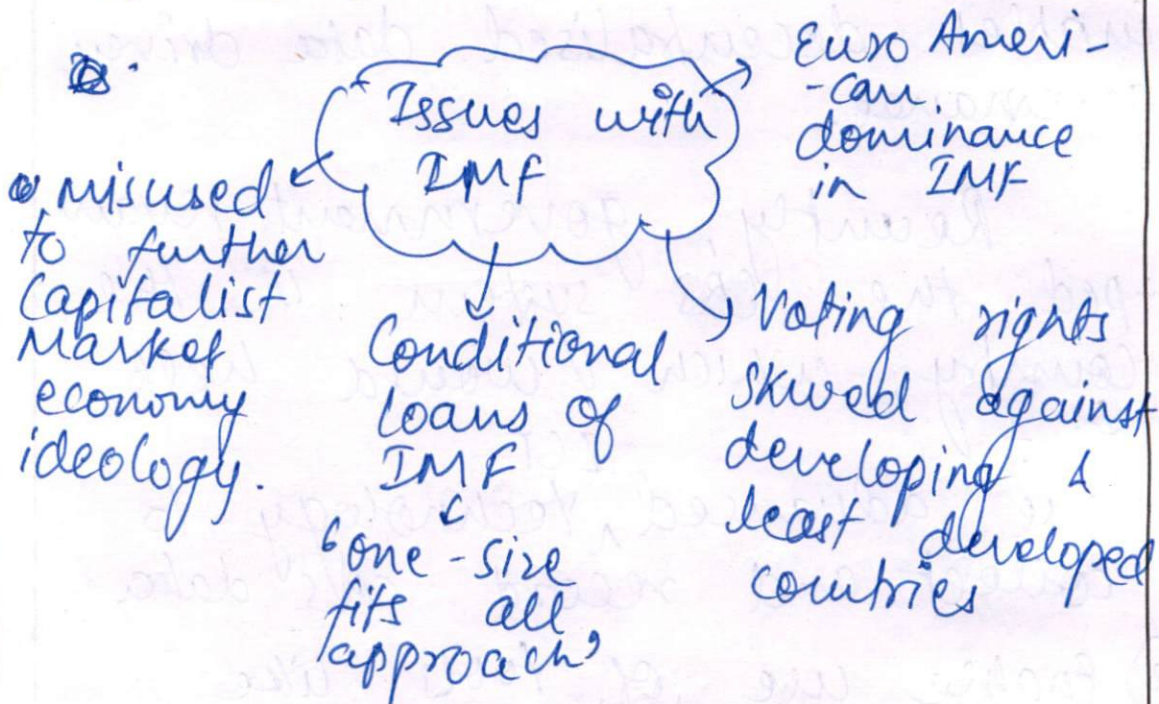 Issues with
IMF
Euro Ameri-
-can
dominance
in IMF
misused
to further
Capitalist
Market
economy
ideology.
Conditional
loans of
IMF
'one-size
fits all
approach'
Voting rights
skwed against
developing &
least developed
countries